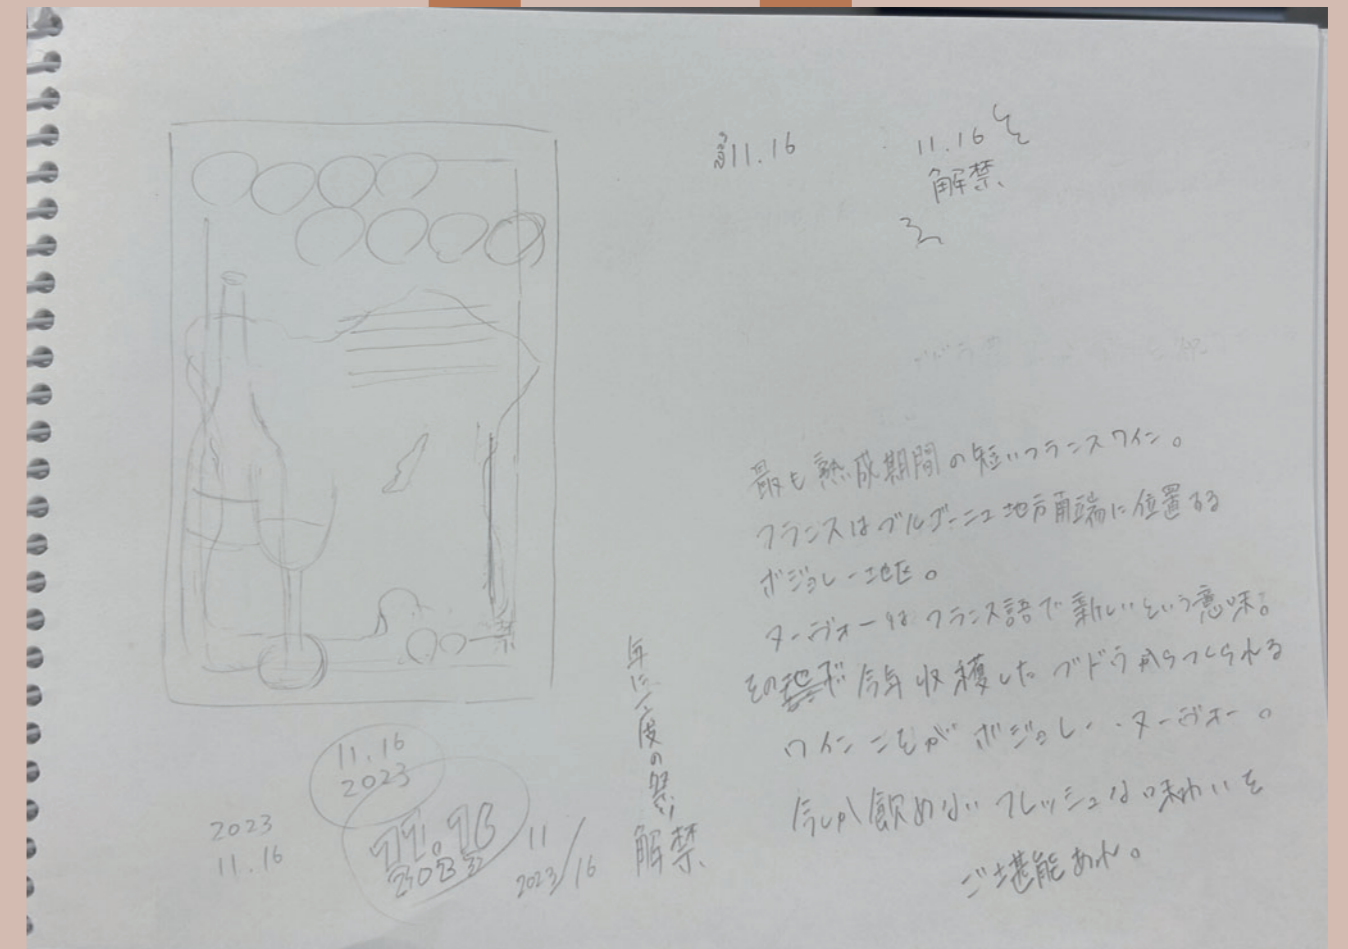 11.16
11.16
解禁
最も熟成期間の短いフランスワイン。
フランスはブルゴーニュ地方南端に位置する
ボジョレー地区。
ヌーヴォーはフランス語で新しいという意味。
その地で今年収穫したブドウからつくられる
ワインこそがボジョレー・ヌーヴォー。
今しか飲めないフレッシュな味わいを
ご堪能あれ。
年に一度の祭り
解禁
11.16
2023
11.16
2023
2023
11.16
11/16
2023